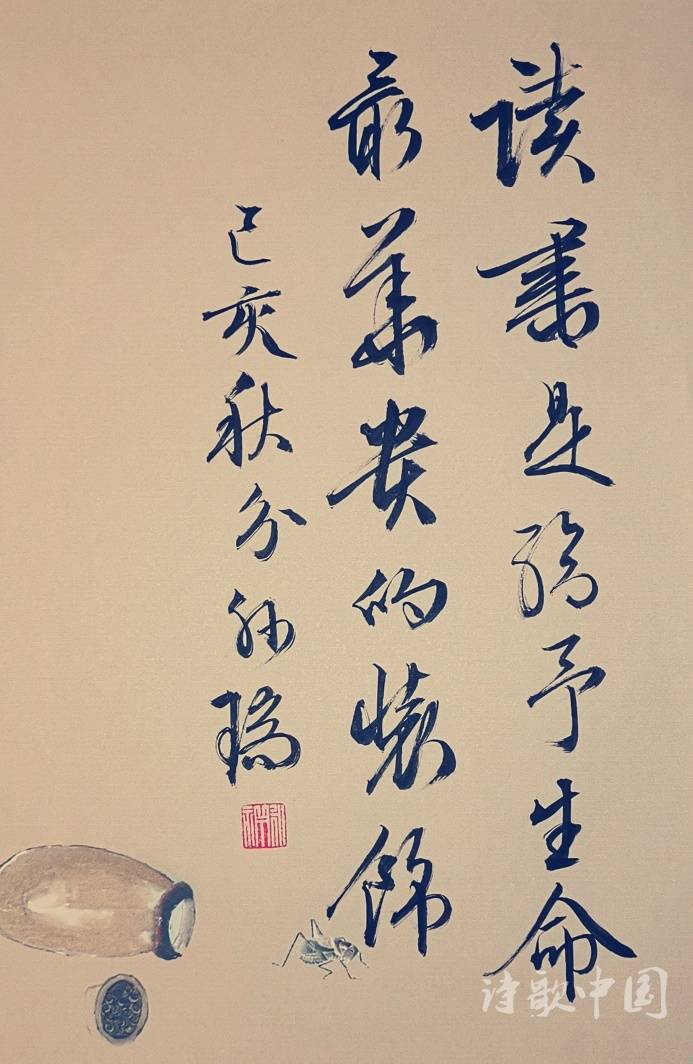 读书是给予生命
最华贵的装饰
己亥秋分 孙瑞
诗歌中国